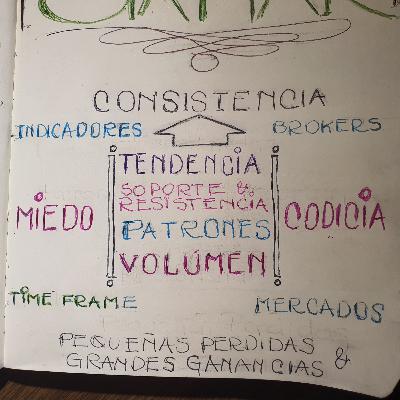 CONSISTENCIA
INDICADORES BROKERS
TENDENCIA
SOPORTE &
RESISTENCIA
MIEDO CODICIA
PATRONES
VOLÚMEN
TIME FRAME MERCADOS
PEQUEÑAS PERDIDAS &
GRANDES GANANCIAS